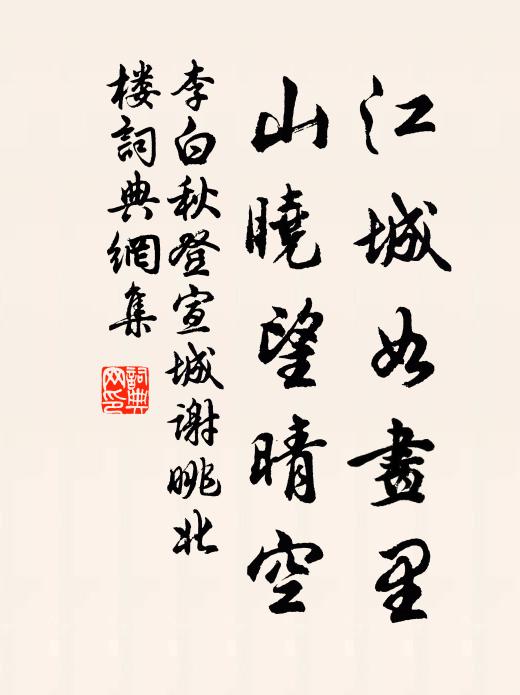 江城如畫里
山曉望晴空
李白秋登宣城謝眺北
楼詞典網集
詞典
网印